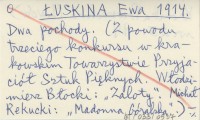 ŁUSKINA Ewa 1914.
Dwa pochody. (Z powodu
trzeciego konkursu w kra-
kowskim Towarzystwie Przyja-
ciół Sztuk Pięknych. Włodzi-
mierz Błocki: „Zaloty", Michał
Rekucki: „Madonna Góralska")